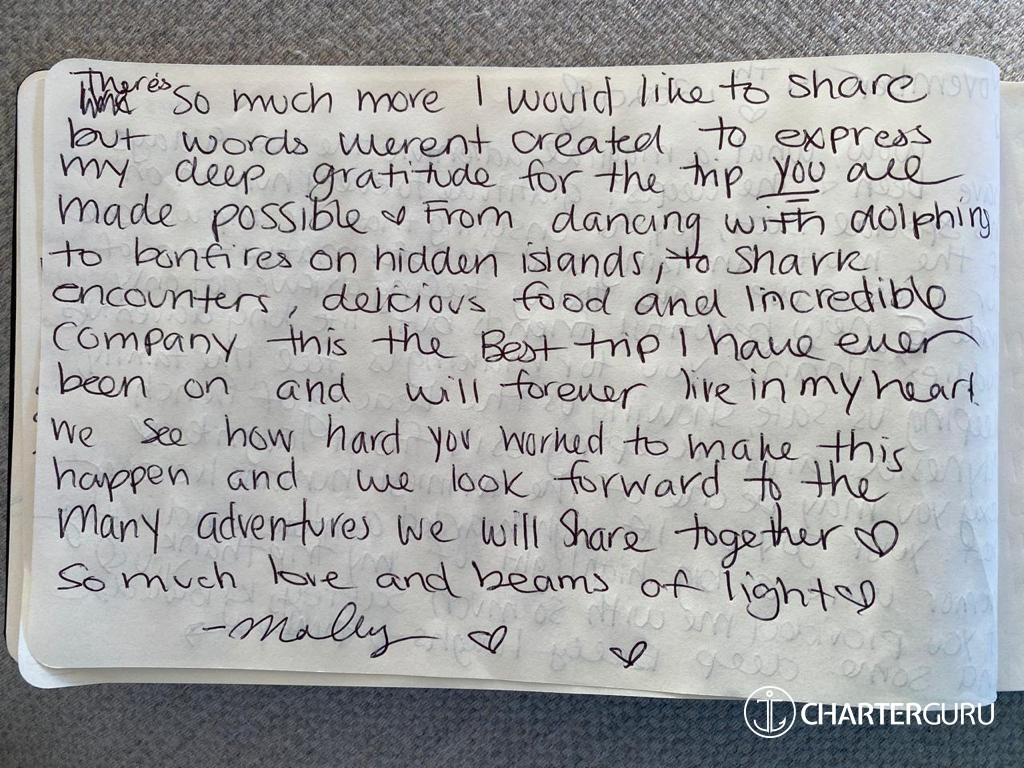 There's so much more I would like to share
but words werent created to express
my deep gratitude for the trip you all
made possible ♡ From dancing with dolphins
to bonfires on hidden islands, to shark
encounters, delicious food and incredible
company this the Best trip I have ever
been on and will forever live in my heart.
We see how hard you worked to make this
happen and we look forward to the
many adventures we will share together ♡
So much love and beams of light ♡
♡ ♡
CHARTERGURU